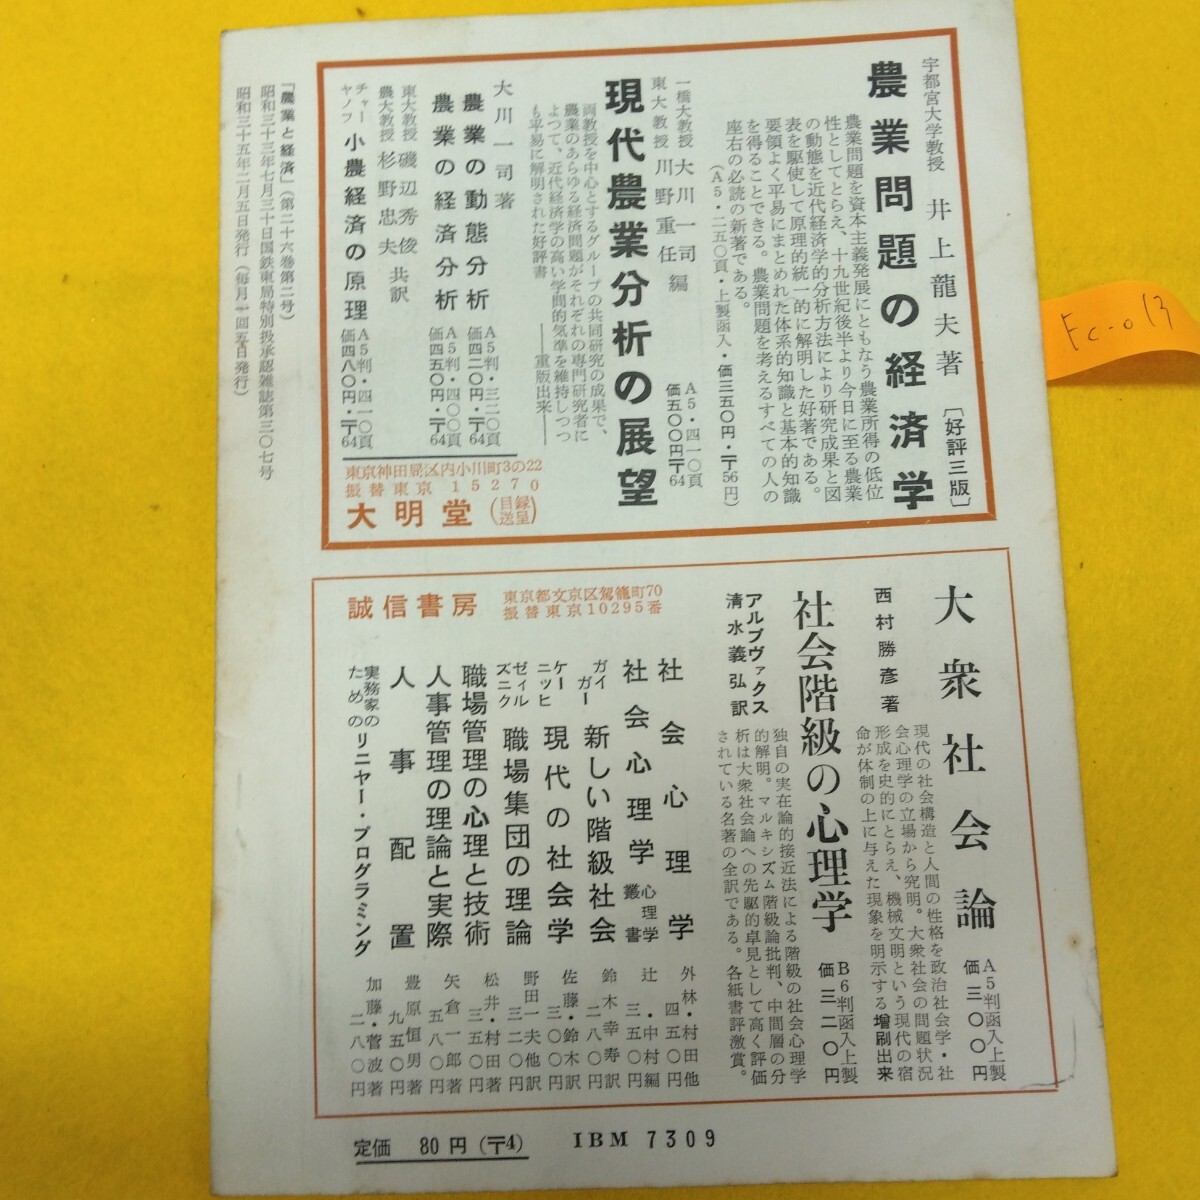 宇都宮大学教授 井上龍夫著 〔好評三版〕
農業問題の経済学
農業問題を資本主義発展にともなう農業所得の低位
性としてとらえ、十九世紀後半より今日に至る農業
の動態を近代経済学的分析方法により研究成果と図
表を駆使して原理的統一的に解明した好著である。
要領よく平易にまとめれた体系的知識と基本的知識
を得ることできる。農業問題を考えるすべての人の
座右の必読の新著である。
(A5・二五〇頁・上製函入・価三五〇円・〒56円)
一橋大教授 大川一司
東大教授 川野重任 編
A5・四一〇頁
価五〇〇円〒64
現代農業分析の展望
両教授を中心とするグループの共同研究の成果で、
農業のあらゆる経済問題がそれぞれの専門研究者に
よつて、近代経済学の高い学問的気準を維持しつつ
も平易に解明された好評書 ――重版出来――
大川一司著
農業の動態分析 A5判・三二〇頁 価四二〇円・〒64
農業の経済分析 A5判・四〇〇頁 価四五〇円・〒64
東大教授 磯辺秀俊
農大教授 杉野忠夫 共訳
チャーヤノフ 小農経済の原理 A5判・四一〇頁 価四八〇円・〒64
東京神田局区内小川町3の22
振替東京 15270
大明堂 (目録送呈)
「農業と経済」(第二十六巻第二号)
昭和三十三年七月三十日国鉄東局特別扱承認雑誌第三〇七号
昭和三十五年二月五日発行(毎月一回五日発行)
大衆社会論
西村勝彦著
現代の社会構造と人間の性格を政治社会学・社
会心理学の立場から究明。大衆社会の問題状況
形成を史的にとらえ、機械文明という現代の宿
命が体制の上に与えた現象を明示する 増刷出来
A5判函入上製
価三〇〇円
社会階級の心理学
アルブヴァクス
清水義弘訳
独自の実在論的接近法による階級の社会心理学
的解明。マルキシズム階級論批判、中間層の分
析は大衆社会論への先駆的卓見として高く評価
されている名著の全訳である。各紙書評激賞。
B6判函入上製
価三二〇円
誠信書房
東京都文京区駕籠町70
振替東京10295番
社会心理学 外林・村田他 四五〇円
社会心理学 心理学叢書 辻・中村編 三五〇円
ガイガー 新しい階級社会 鈴木幸寿訳 二八〇円
ケーニッヒ 現代の社会学 佐藤・鈴木訳 三〇〇円
ゼィルズニク 職場集団の理論 野田一夫他訳 三二〇円
職場管理の心理と技術 松井・村田著 三五〇円
人事管理の理論と実際 矢倉一郎著 五八〇円
人事配置 豊原恒男著 九五〇円
実務家のための リニヤー・プログラミング 加藤・菅波著 二八〇円
定価 80円(〒4)
IBM 7309
Fc-013